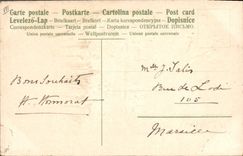 Carte postale - Postkarte - Cartolina postale - Post card
Levelező-Lap - Briefkaart - Brefkort - Karta korespondencyjna - Dopisnice
Correspondenzkarte - Tarjeta postal - Dopisnica - ОТКРЫТОЕ ПИСЬМО
Union postale universelle - Weltpostverein - Unione postale universale
Bons Souhaits
H.
Mlle J.
Rue de Lodi
105
Marseille